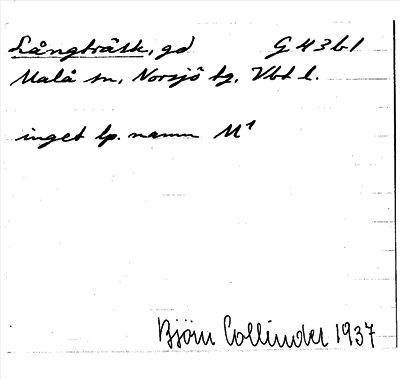 Långträsk, gd G 43 b 1
Malå sn, Norsjö tg, Vbt l.
inget lp. namn M¹
Björn Collinder 1937